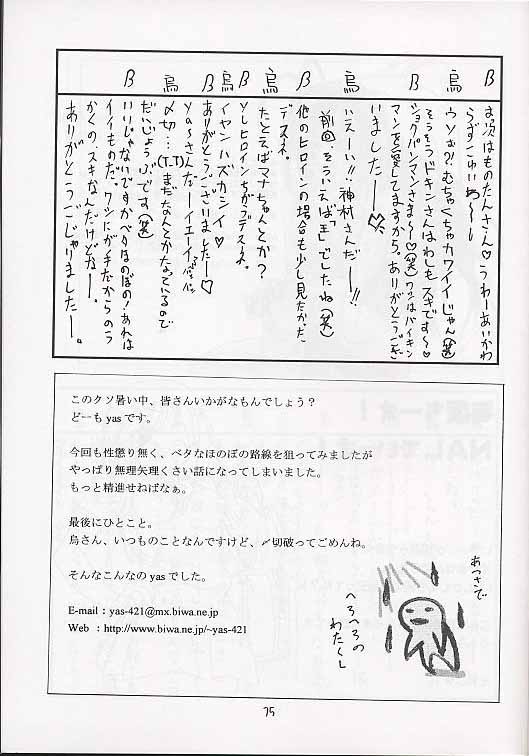 β
烏
β
烏
β
烏
β
烏
β
お次はものたんさん♡うわーあいかわ
らずすごいわ〜
ウソぉ?!むちゃくちゃカワイイじゃん(笑)
そうそうドキンさんはわしもスキです〜♡
ショクパンマンさま〜♡(笑)ワシはバイキン
マンを愛してますから。ありがとうござ
いました―♡
いえーい!!神村さんだー!!
前回、そういえば「王」でしたね(笑)
他のヒロインの場合も少し見たかった
デスネ。
たとえばマナちゃんとか?
ソレヒロインちがうデスネ。
イヤンハズカシイ♡
ありがとうございました―♡
yasさんだーイエーイ
〆切…(T.T)まだなんとかなっているので
だいじょうぶです(笑)
いいじゃないですかベタなほのぼの!あれは
イイものだ。ワシにがイ手だからのう
かくの、スキなんだけどなー。
ありがとうごじゃりましたー。
このクソ暑い中、皆さんいかがなもんでしょう?
どーもyasです。
今回も性懲り無く、ベタなほのぼの路線を狙ってみましたが
やっぱり無理矢理くさい話になってしまいました。
もっと精進せねばなぁ。
最後にひとこと。
烏さん、いつものことなんですけど、〆切破ってごめんね。
そんなこんなの yas でした。
E-mail : yas-421@mx.biwa.ne.jp
Web : http://www.biwa.ne.jp/~yas-421
あつさで
へろへろの
わたくし
75